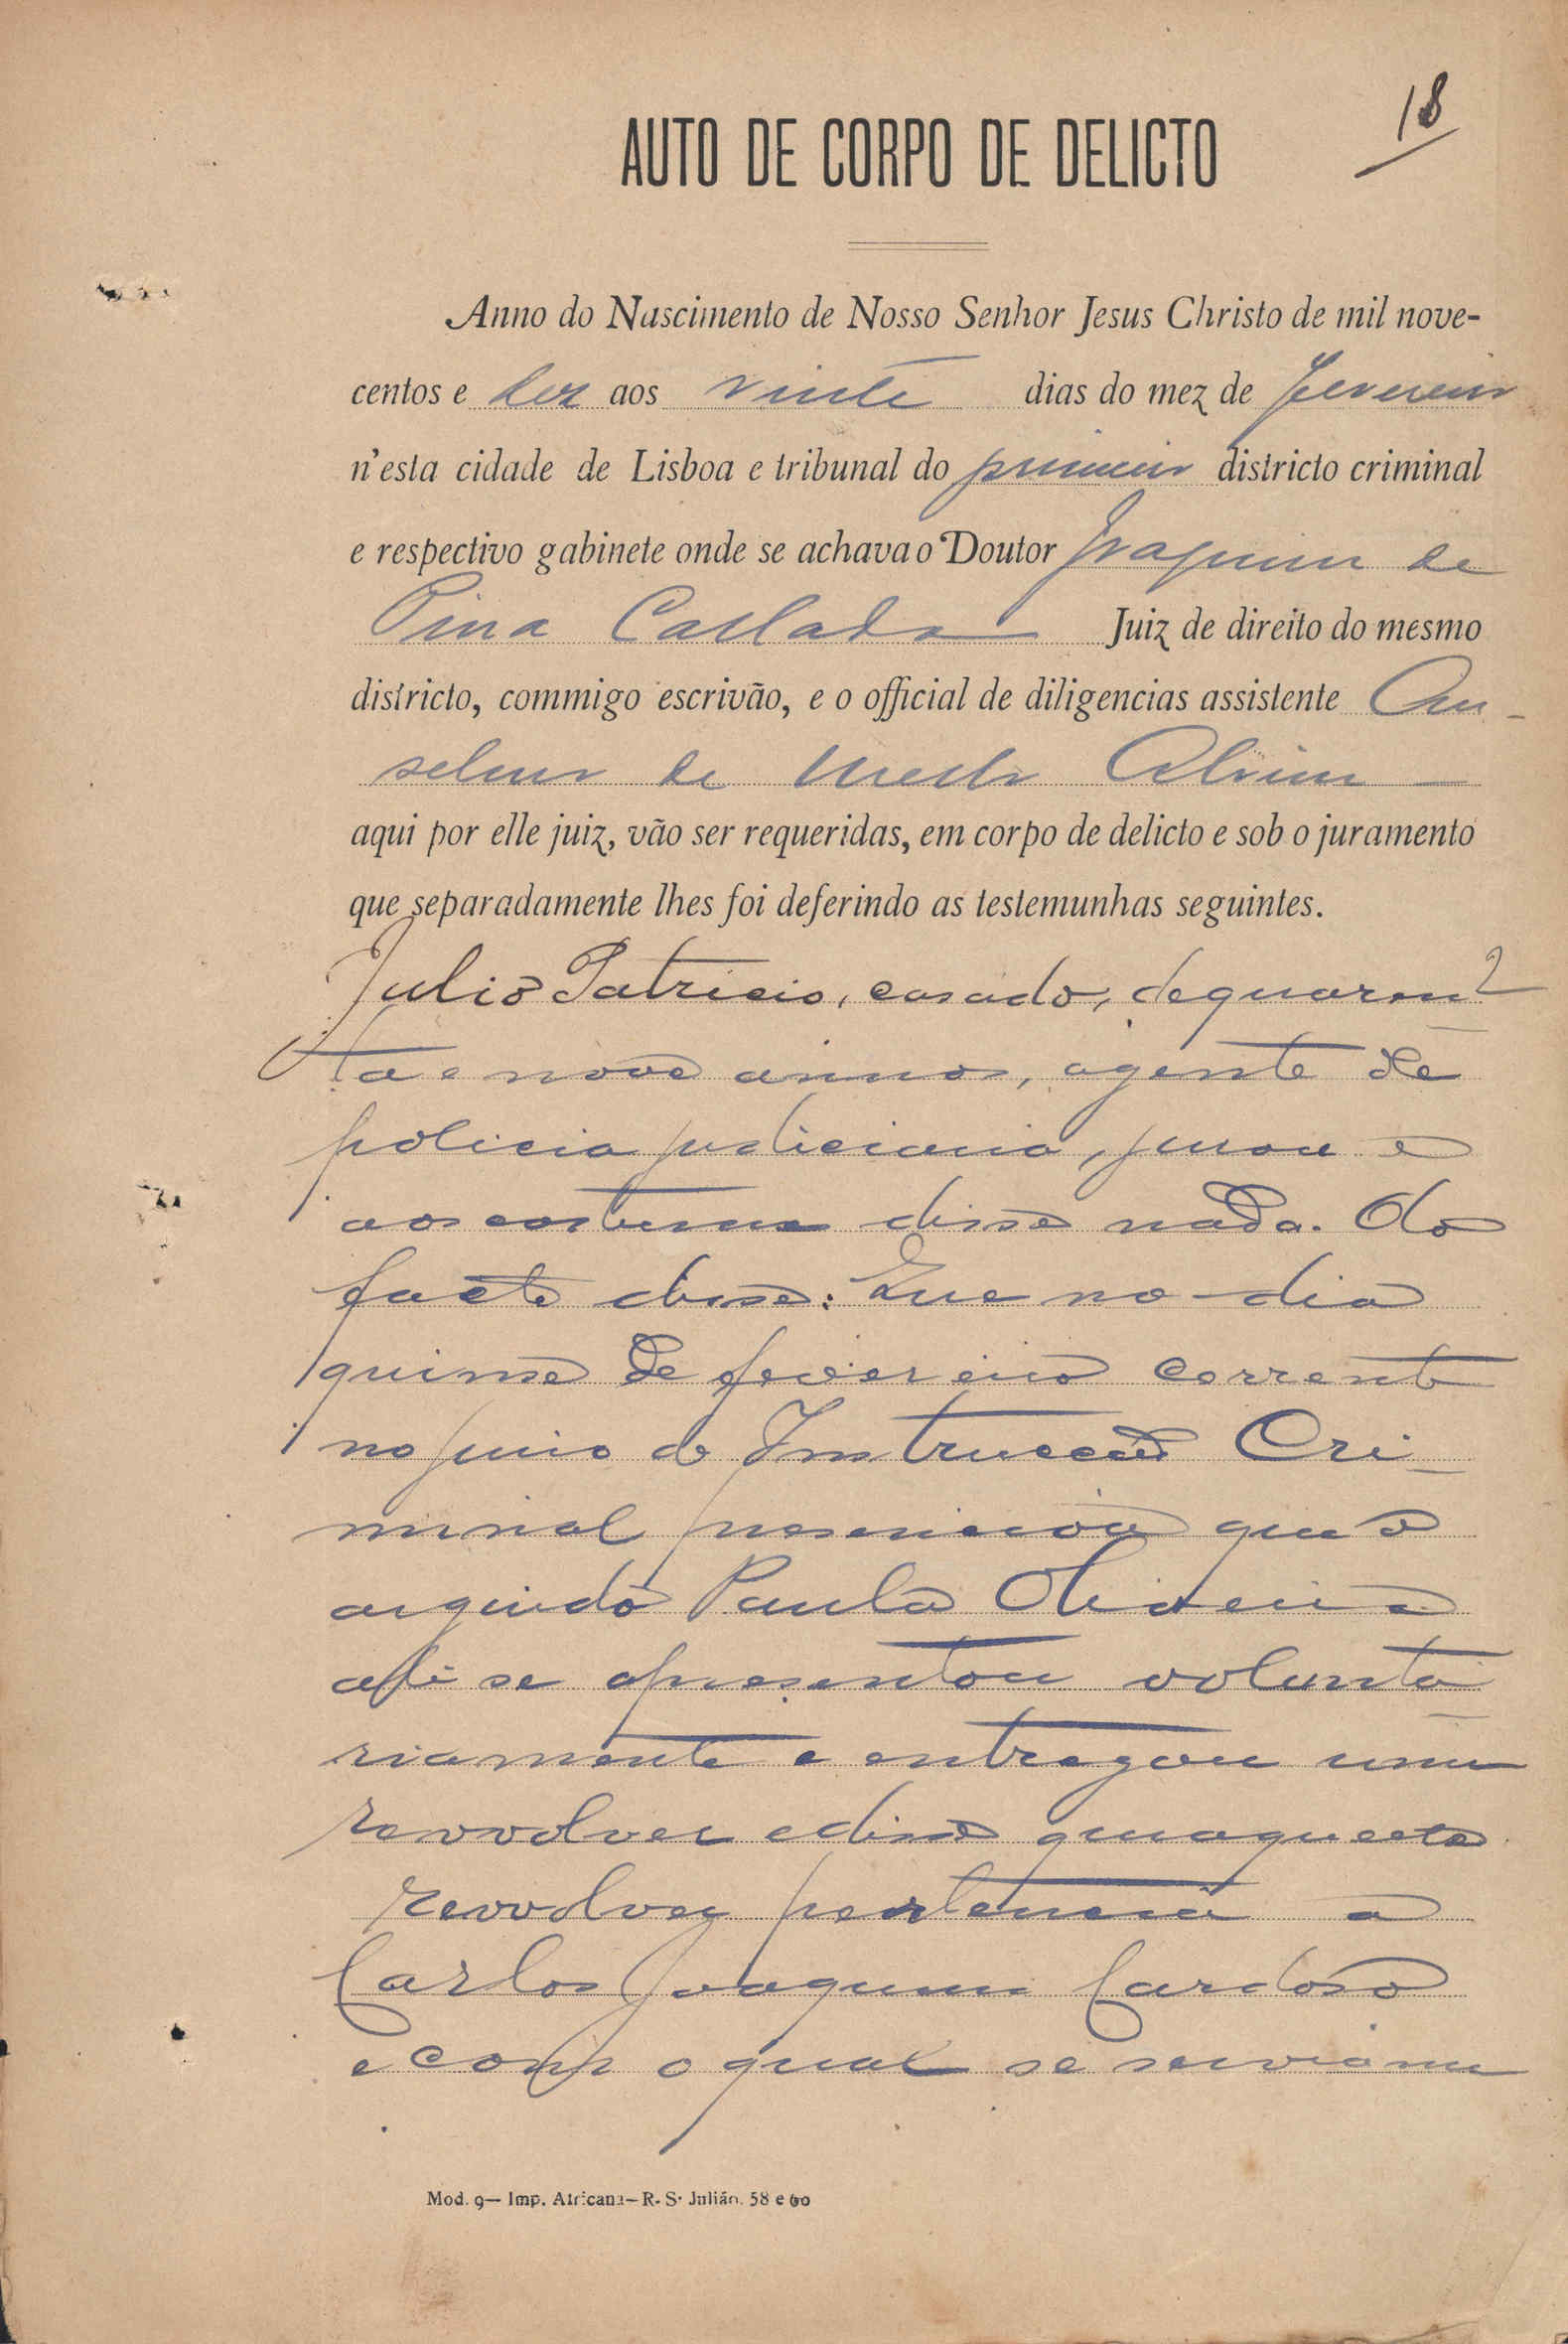 18
AUTO DE CORPO DE DELICTO
Anno do Nascimento de Nosso Senhor Jesus Christo de mil nove-
centos e dez aos vinte dias do mez de Fevereiro
n'esta cidade de Lisboa e tribunal do primeiro districto criminal
e respectivo gabinete onde se achava o Doutor Joaquim de
Pina Callado Juiz de direito do mesmo
districto, commigo escrivão, e o official de diligencias assistente An-
selmo de Mello Alvim
aqui por elle juiz, vão ser requeridas, em corpo de delicto e sob o juramento
que separadamente lhes foi deferindo as testemunhas seguintes.
Julio Patricio, casado, de quaren-
ta e nove annos, agente de
policia judiciaria, jurou e
aos costumes disse nada. Do
facto disse: Que no dia
quinse de fevereiro corrente
no juiso de Instrucção Cri-
minal presenciou que o
arguido Paula Oliveira
ali se apresentou volunta-
riamente e entregou um
revolver e disse que aquelle
revolver pertencia a
Carlos Joaquim Cardoso
e com o qual se serviam
Mod. 9— Imp. Africana—R. S. Julião, 58 e 60